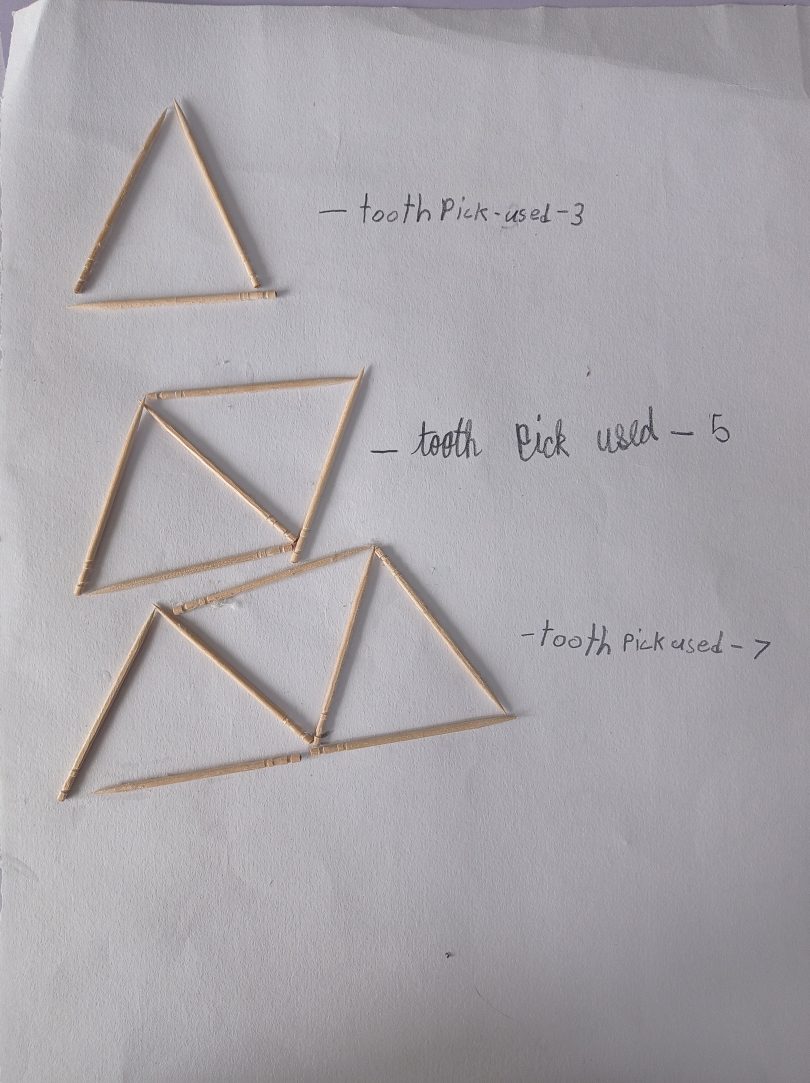 - tooth Pick-used-3
- tooth Pick used - 5
- tooth Pick used - 7